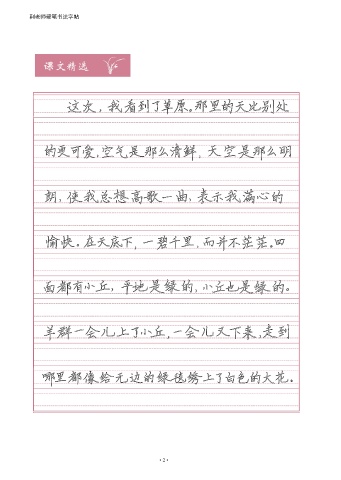 田老师硬笔书法字帖
课文精选
这次，我看到了草原。那里的天比别处
的更可爱，空气是那么清鲜，天空是那么明
朗，使我总想高歌一曲，表示我满心的
愉快。在天底下，一碧千里，而并不茫茫。四
面都有小丘，平地是绿的，小丘也是绿的。
羊群一会儿上了小丘，一会儿又下来，走到
哪里都像给无边的绿毯绣上了白色的大花。
·2·